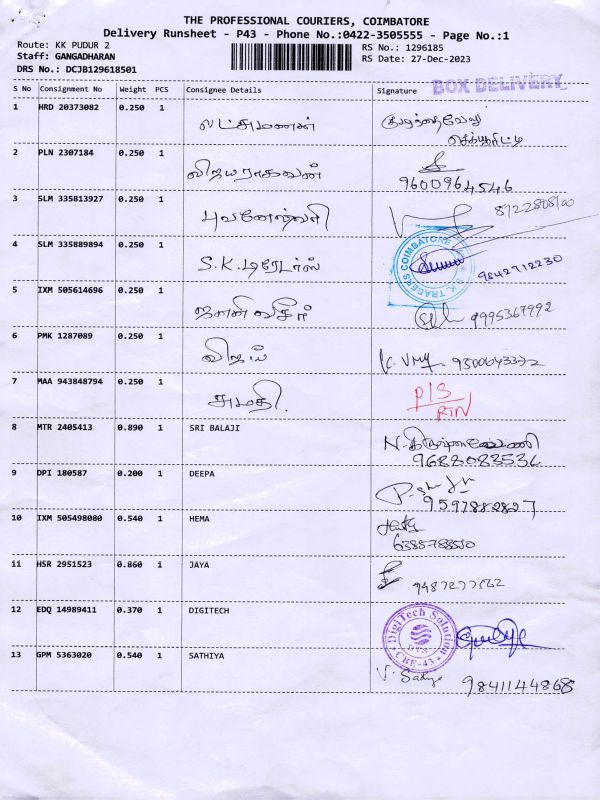 THE PROFESSIONAL COURIERS, COIMBATORE
Delivery Runsheet - P43 - Phone No.:0422-3505555 - Page No.:1
Route: KK PUDUR 2 RS No.: 1296185
Staff: GANGADHARAN RS Date: 27-Dec-2023
DRS No.: DCJB129618501
BOX DELIVERY
S No Consignment No Weight PCS Consignee Details Signature
1 HRD 20373082 0.250 1 லட்சுமணன் குழந்தைவேலு
செக்யூரிட்டி
2 PLN 2307184 0.250 1 விஜயராகவன்
9600964546
3 SLM 335813927 0.250 1 புவனேஸ்வரி
4 SLM 335889894 0.250 1 S.K. டிரேடர்ஸ் 9842712230
S.K. TRADERS COIMBATORE
5 IXM 505614696 0.250 1 ஜான் வீசர் 9995367992
6 PMK 1287089 0.250 1 விஜய் 9300643372
7 MAA 943848794 0.250 1 சுமதி. P/S
RTN
8 MTR 2405413 0.890 1 SRI BALAJI N.
9 DPI 180587 0.200 1 DEEPA
9597882827
10 IXM 505498080 0.540 1 HEMA
11 HSR 2951523 0.860 1 JAYA 9487277562
12 EDQ 14989411 0.370 1 DIGITECH
DigiTech Solution
DTS
CBE-43
13 GPM 5363020 0.540 1 SATHIYA V. Sathya 9841144868